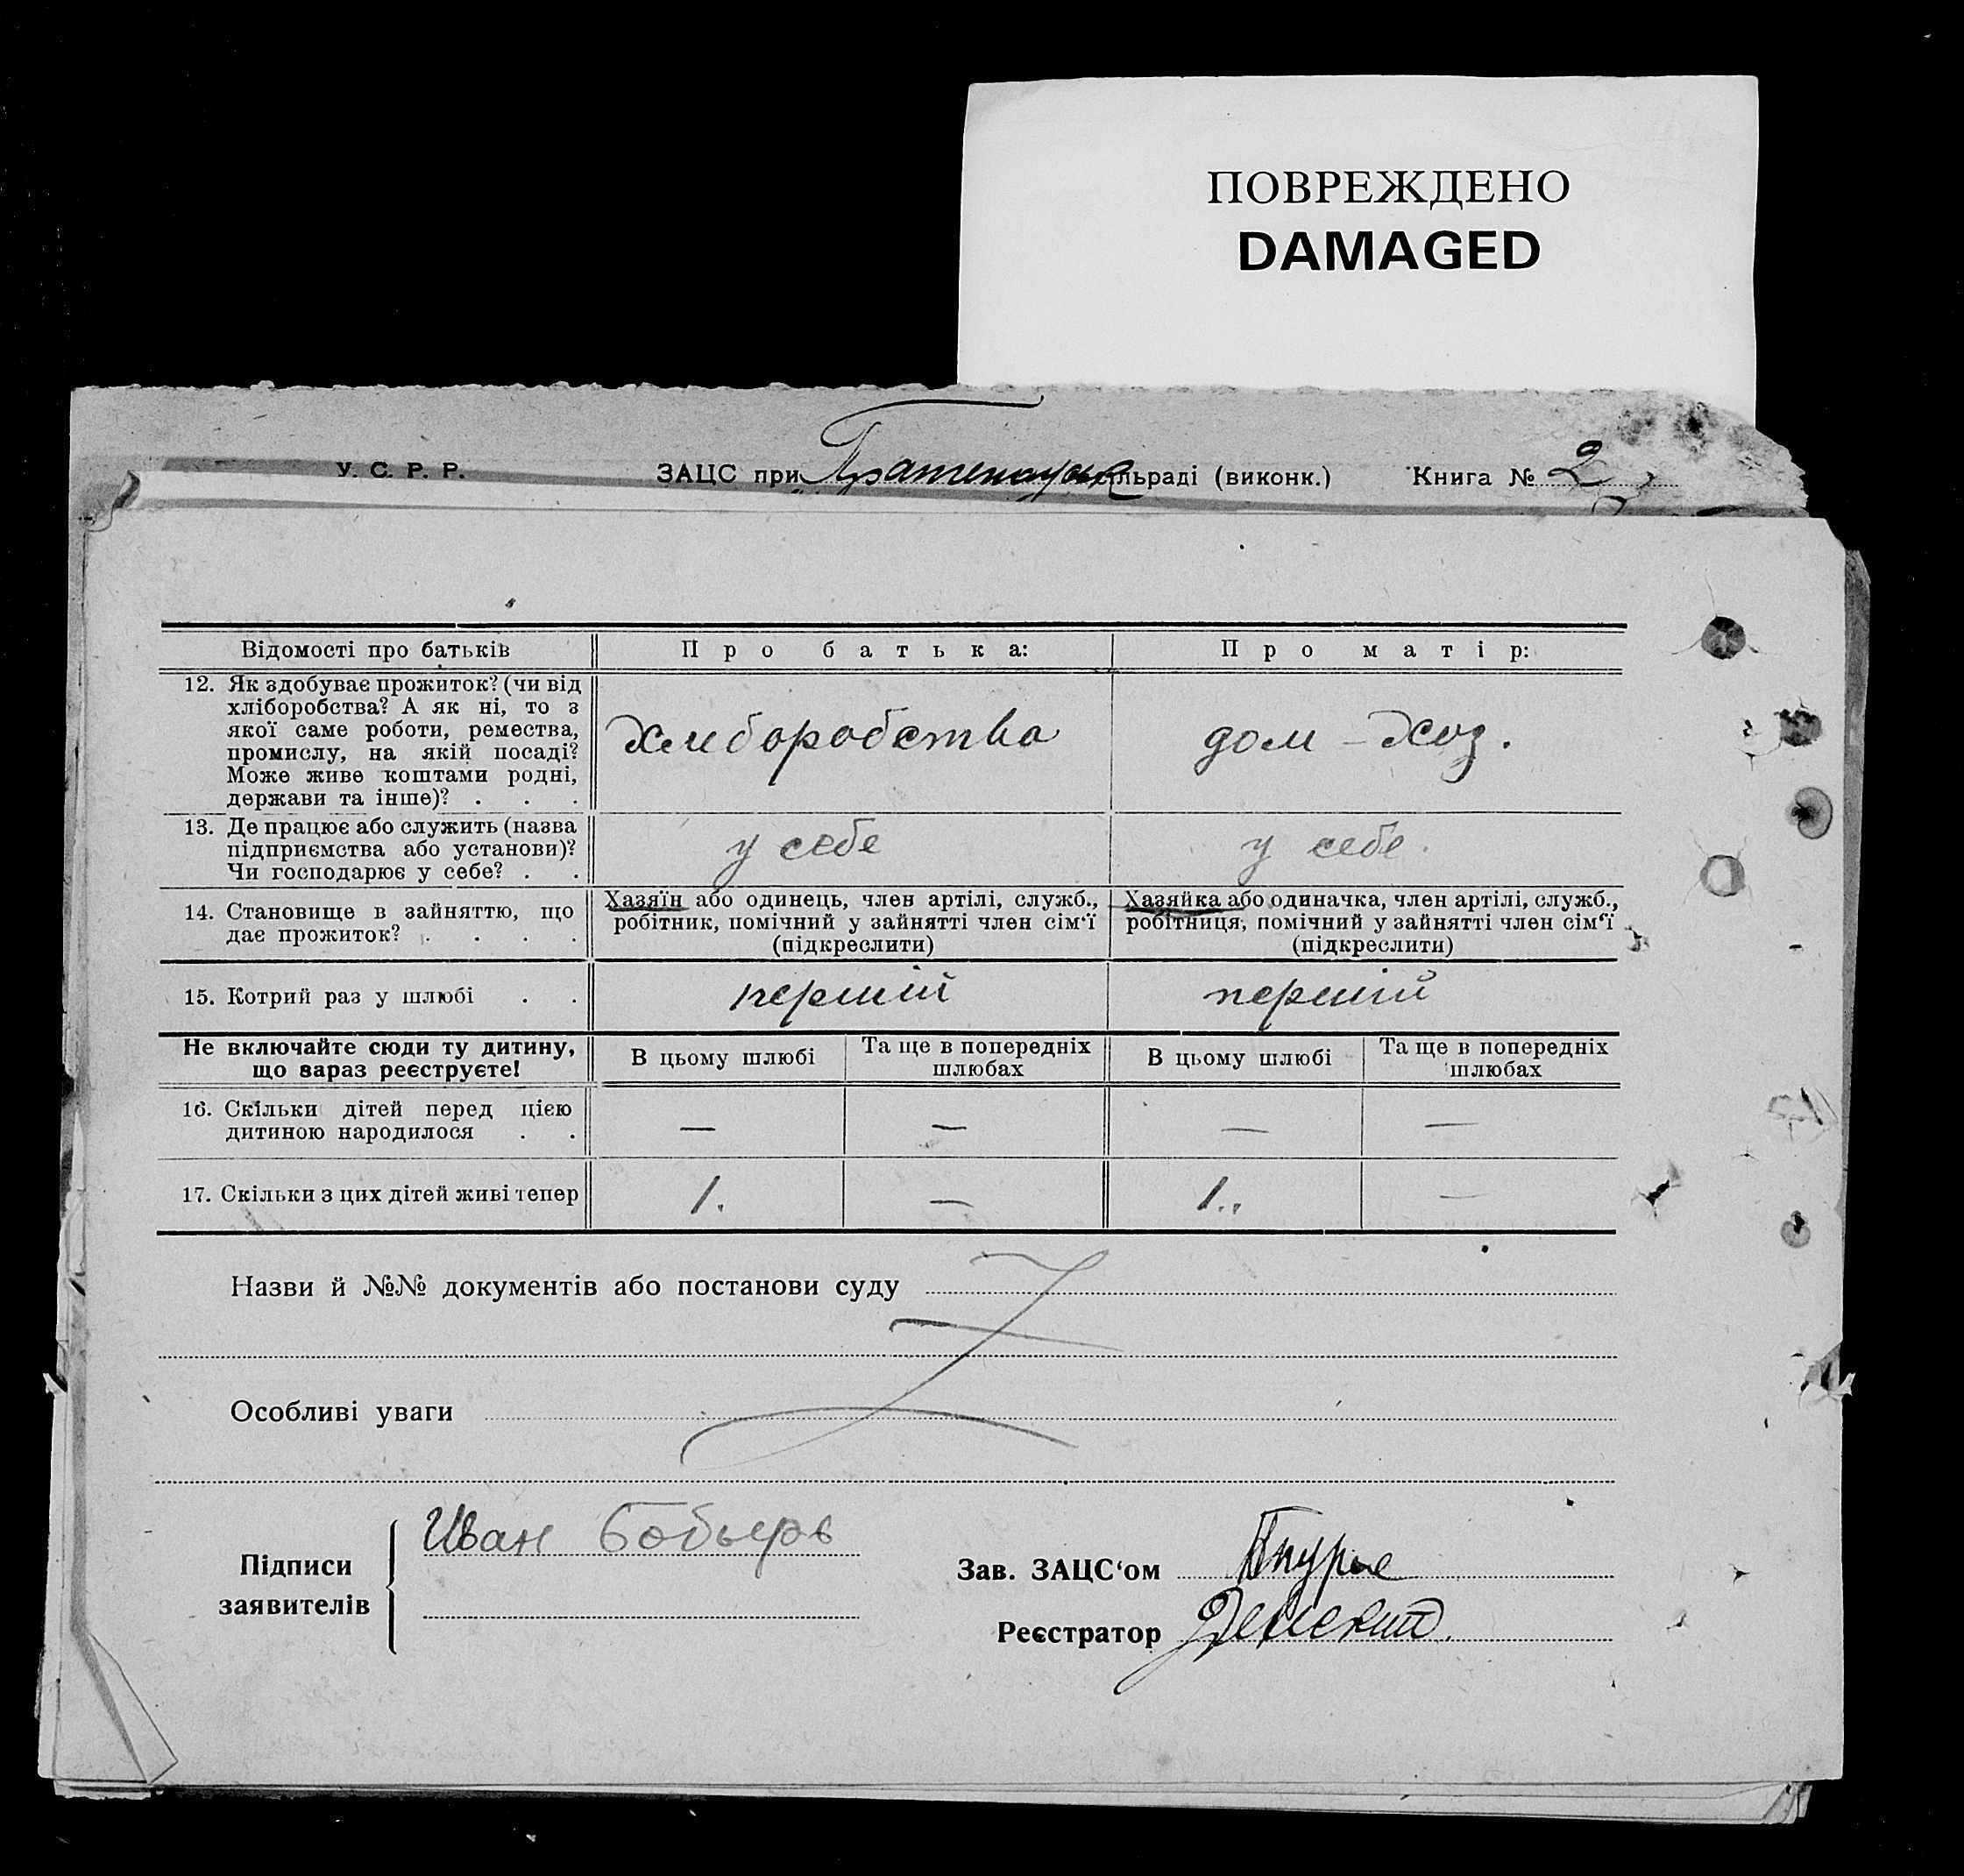 ПОВРЕЖДЕНО
DAMAGED
У. С. Р. Р. ЗАЦС при льраді (виконк.) Книга № 2
Відомості про батьків Про батька: Про матір:
12. Як здобуває прожиток? (чи від
хліборобства? А як ні, то з
якої саме роботи, ремества,
промислу, на якій посаді?
Може живе коштами родні,
держави та інше)? . . .
Хлиборобства дом – Хоз.
13. Де працює або служить (назва
підприємства або установи)?
Чи господарює у себе? . .
у себе у себе.
14. Становище в зайняттю, що
дає прожиток? . . . .
Хазяїн або одинець, член артілі, служб.,
робітник, помічний у зайнятті член сім'ї
(підкреслити)
Хазяйка або одиначка, член артілі, служб.,
робітниця, помічний у зайнятті член сім'ї
(підкреслити)
15. Котрий раз у шлюбі . . перший перший
Не включайте сюди ту дитину,
що зараз реєструєте!
В цьому шлюбі Та ще в попередніх
шлюбах
В цьому шлюбі Та ще в попередніх
шлюбах
16. Скільки дітей перед цією
дитиною народилося . .
— — — —
17. Скільки з цих дітей живі тепер 1. — 1.. —
Назви й №№ документів або постанови суду
Особливі уваги
Підписи
заявителів
Иван Бобырь
Зав. ЗАЦС'ом
Реєстратор